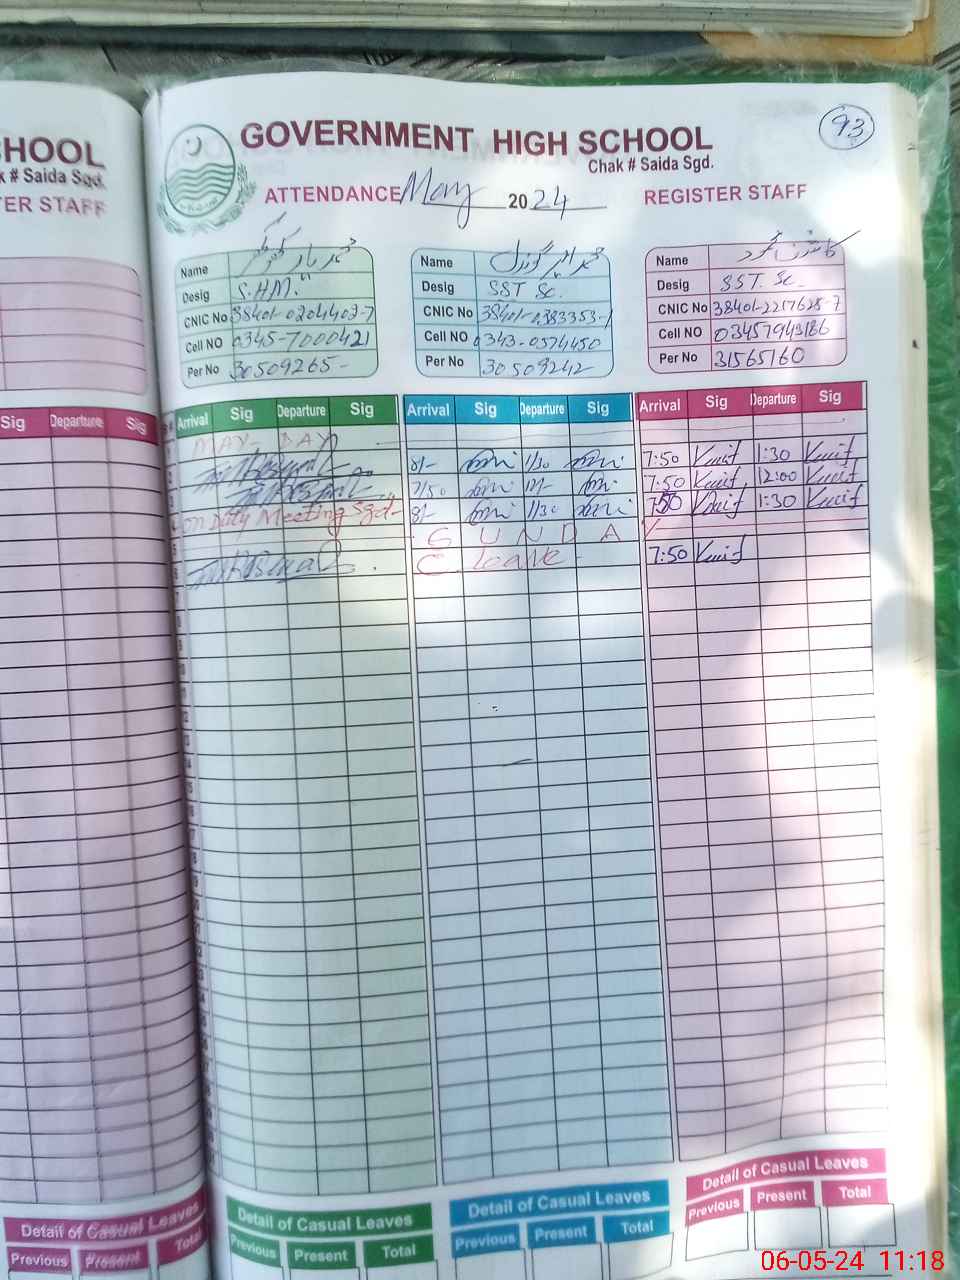 HOOL
k # Saida Sgd.
TER STAFF
GOVERNMENT HIGH SCHOOL
93
Chak # Saida Sgd.
ATTENDANCE May 2024 REGISTER STAFF
Name
Desig S.H.M.
CNIC No 38401-0204403-7
Cell NO 0345-7000421
Per No 30509265-
Name
Desig SST Sc.
CNIC No 38401-0383353-1
Cell NO 0343-0574450
Per No 30509242
Name
Desig SST. Sc.
CNIC No 38401-2217628-7
Cell NO 03457943186
Per No 31565160
Sig Departure Sig
Arrival Sig Departure Sig Arrival Sig Departure Sig Arrival Sig Departure Sig
MAY - DAY
8/- 1/30 7:50 1:30
7/50 12/- 7:50 12:00
on Duty Meeting Sgd- 8/- 1/30 7:50 1:30
SUNDAY
C. leave 7:50
Detail of Casual Leaves
Previous Present Total
Detail of Casual Leaves
Previous Present Total
Detail of Casual Leaves
Previous Present Total
Detail of Casual Leaves
Previous Present Total
06-05-24 11:18